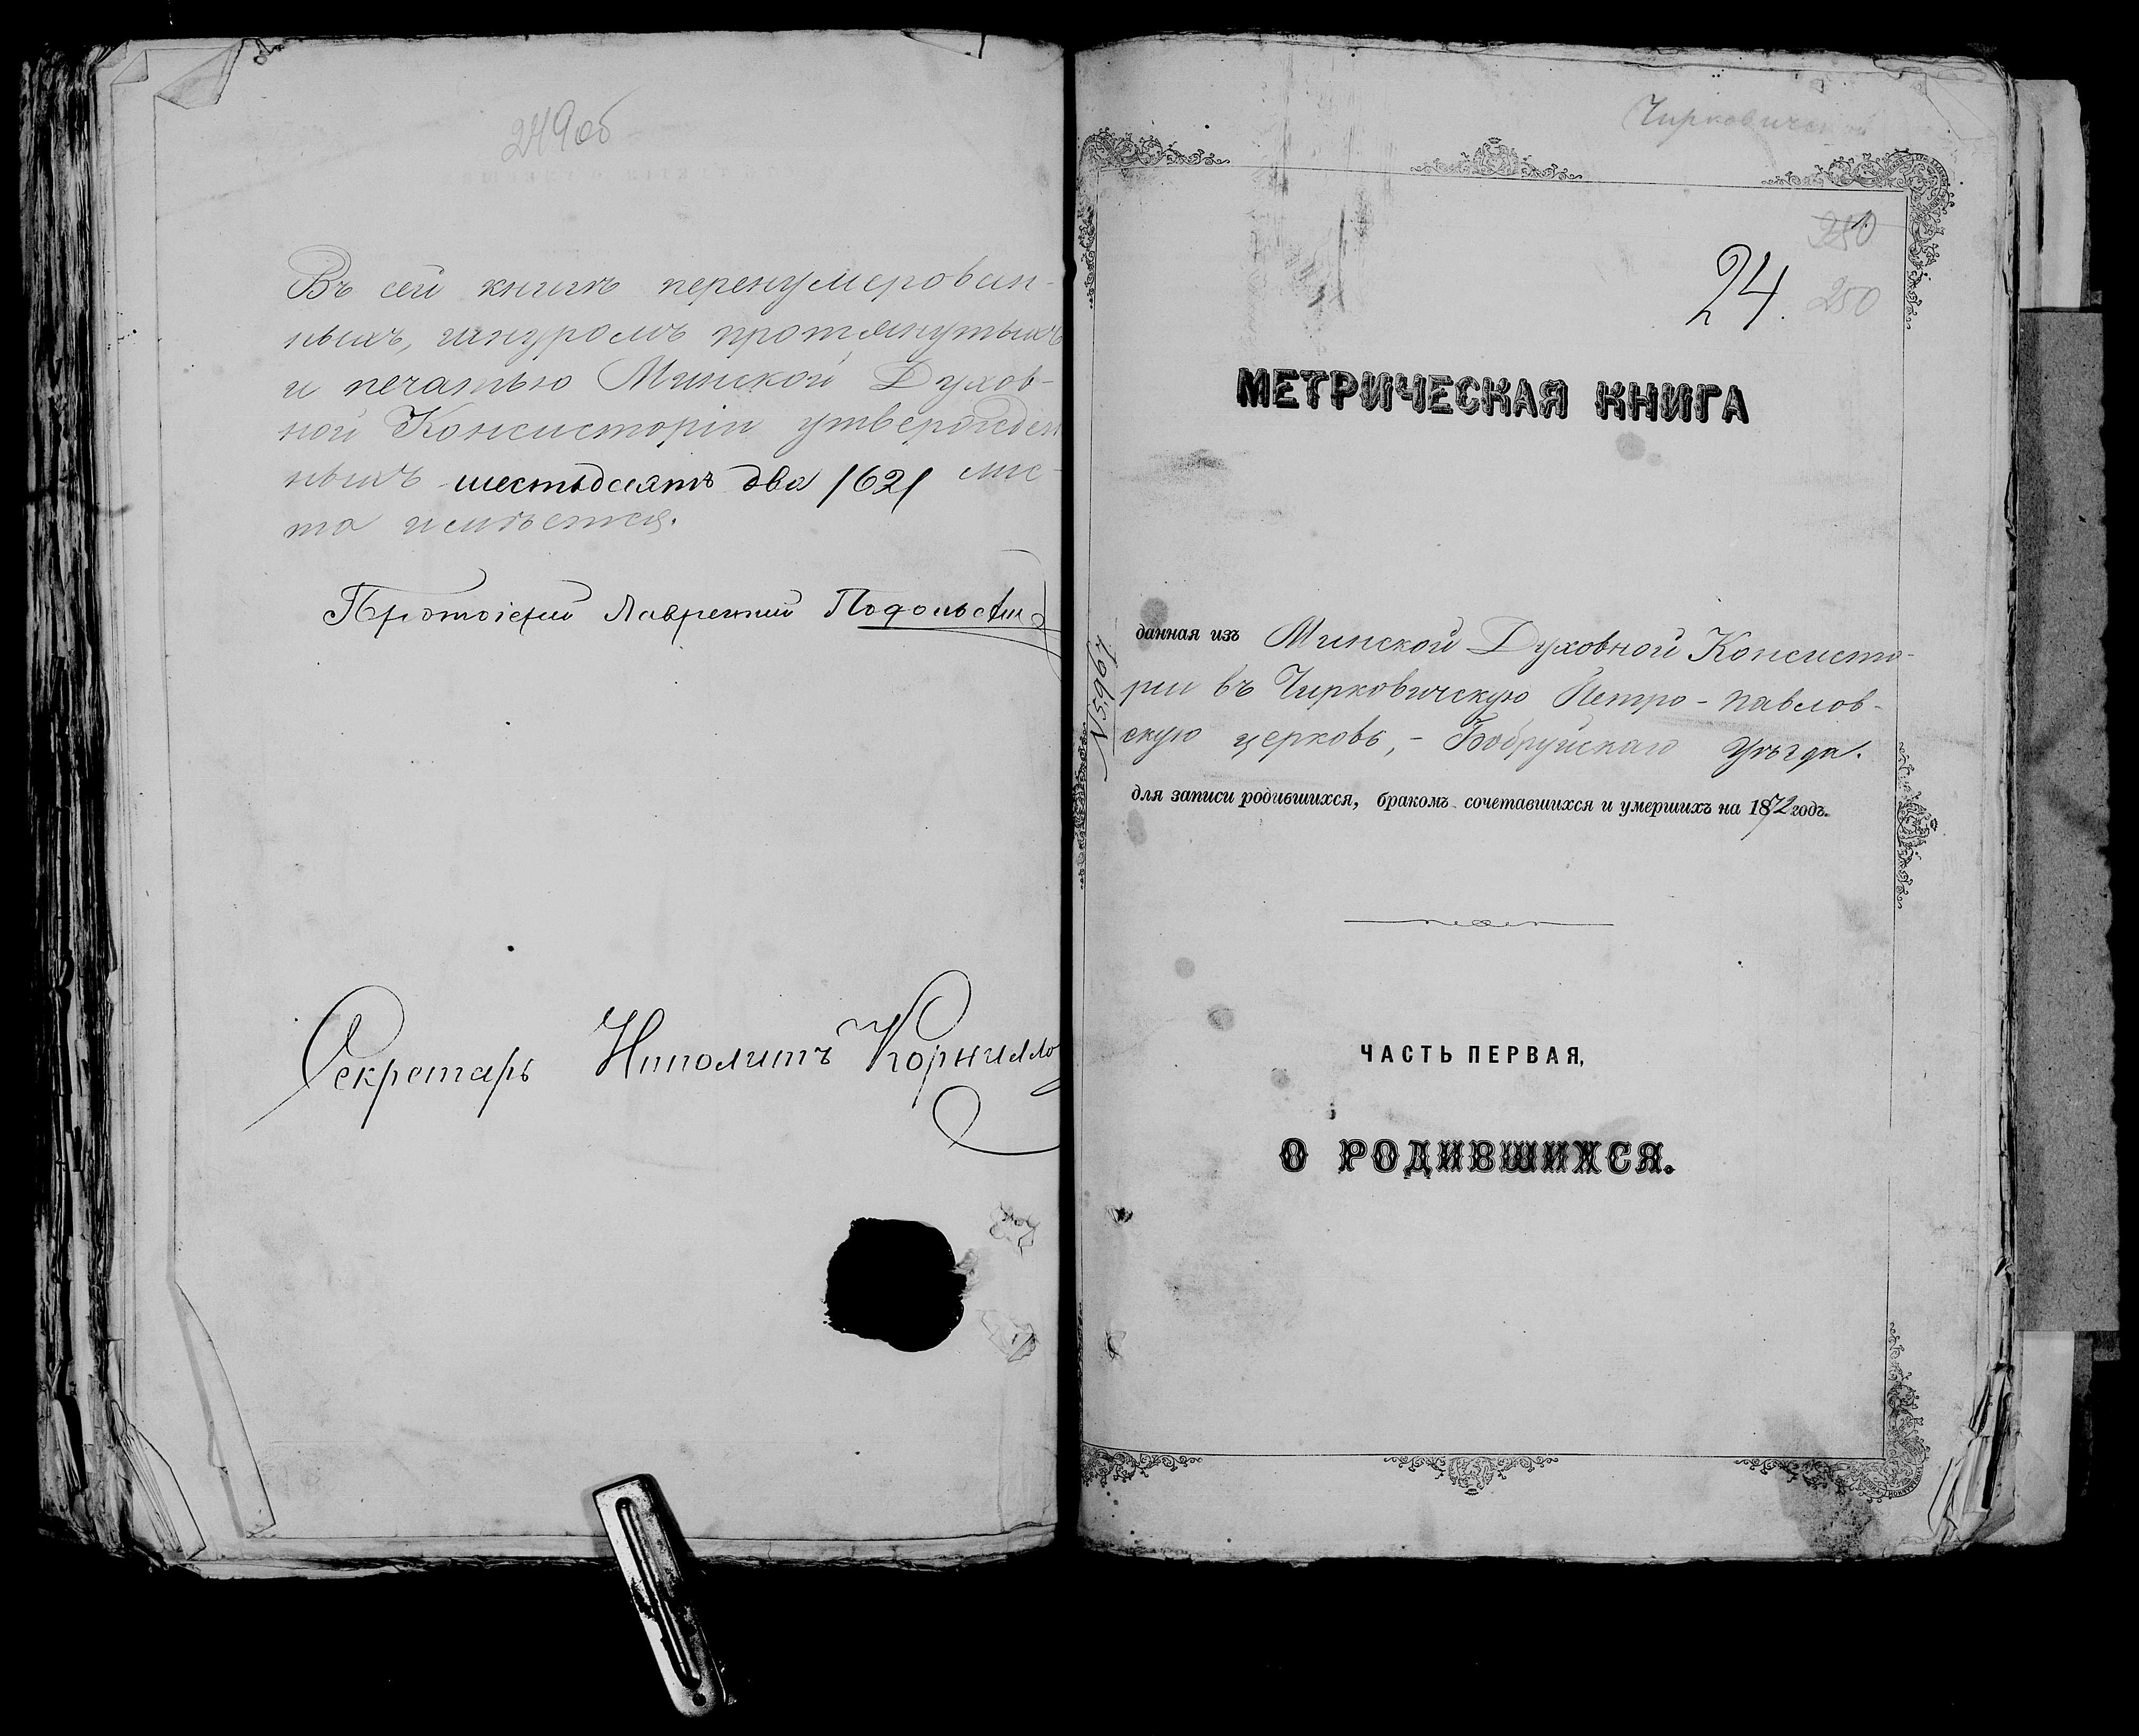 249об
Въ сей книгѣ перенумерован-
ныхъ, шнуромъ протянутыхъ
и печатью Минской Духов-
ной Консисторіи утвержден
ныхъ шестьдесятъ два /62/ лис-
та имѣется.
Протоіерей Лаврентій Подольскій
Секретарь Ипполитъ Корнилло
Чирковической
250
24. 250
МЕТРИЧЕСКАЯ КНИГА
данная изъ Минской Духовной Консисто-
ріи въ Чирковичскую Петро-павлов-
скую церковь, - Бобруйскаго уѣзда.
№ 5967.
для записи родившихся, бракомъ сочетавшихся и умершихъ на 1872 годъ.
ЧАСТЬ ПЕРВАЯ,
О РОДИВШИХСЯ.